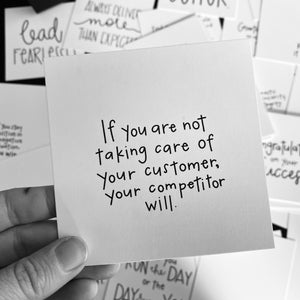 lead
FEARLESSLY
ALWAYS DELIVER
more
THAN EXPECTED
If you are not
taking care of
your customer,
your competitor
will.
RUN the DAY
or the
DAY